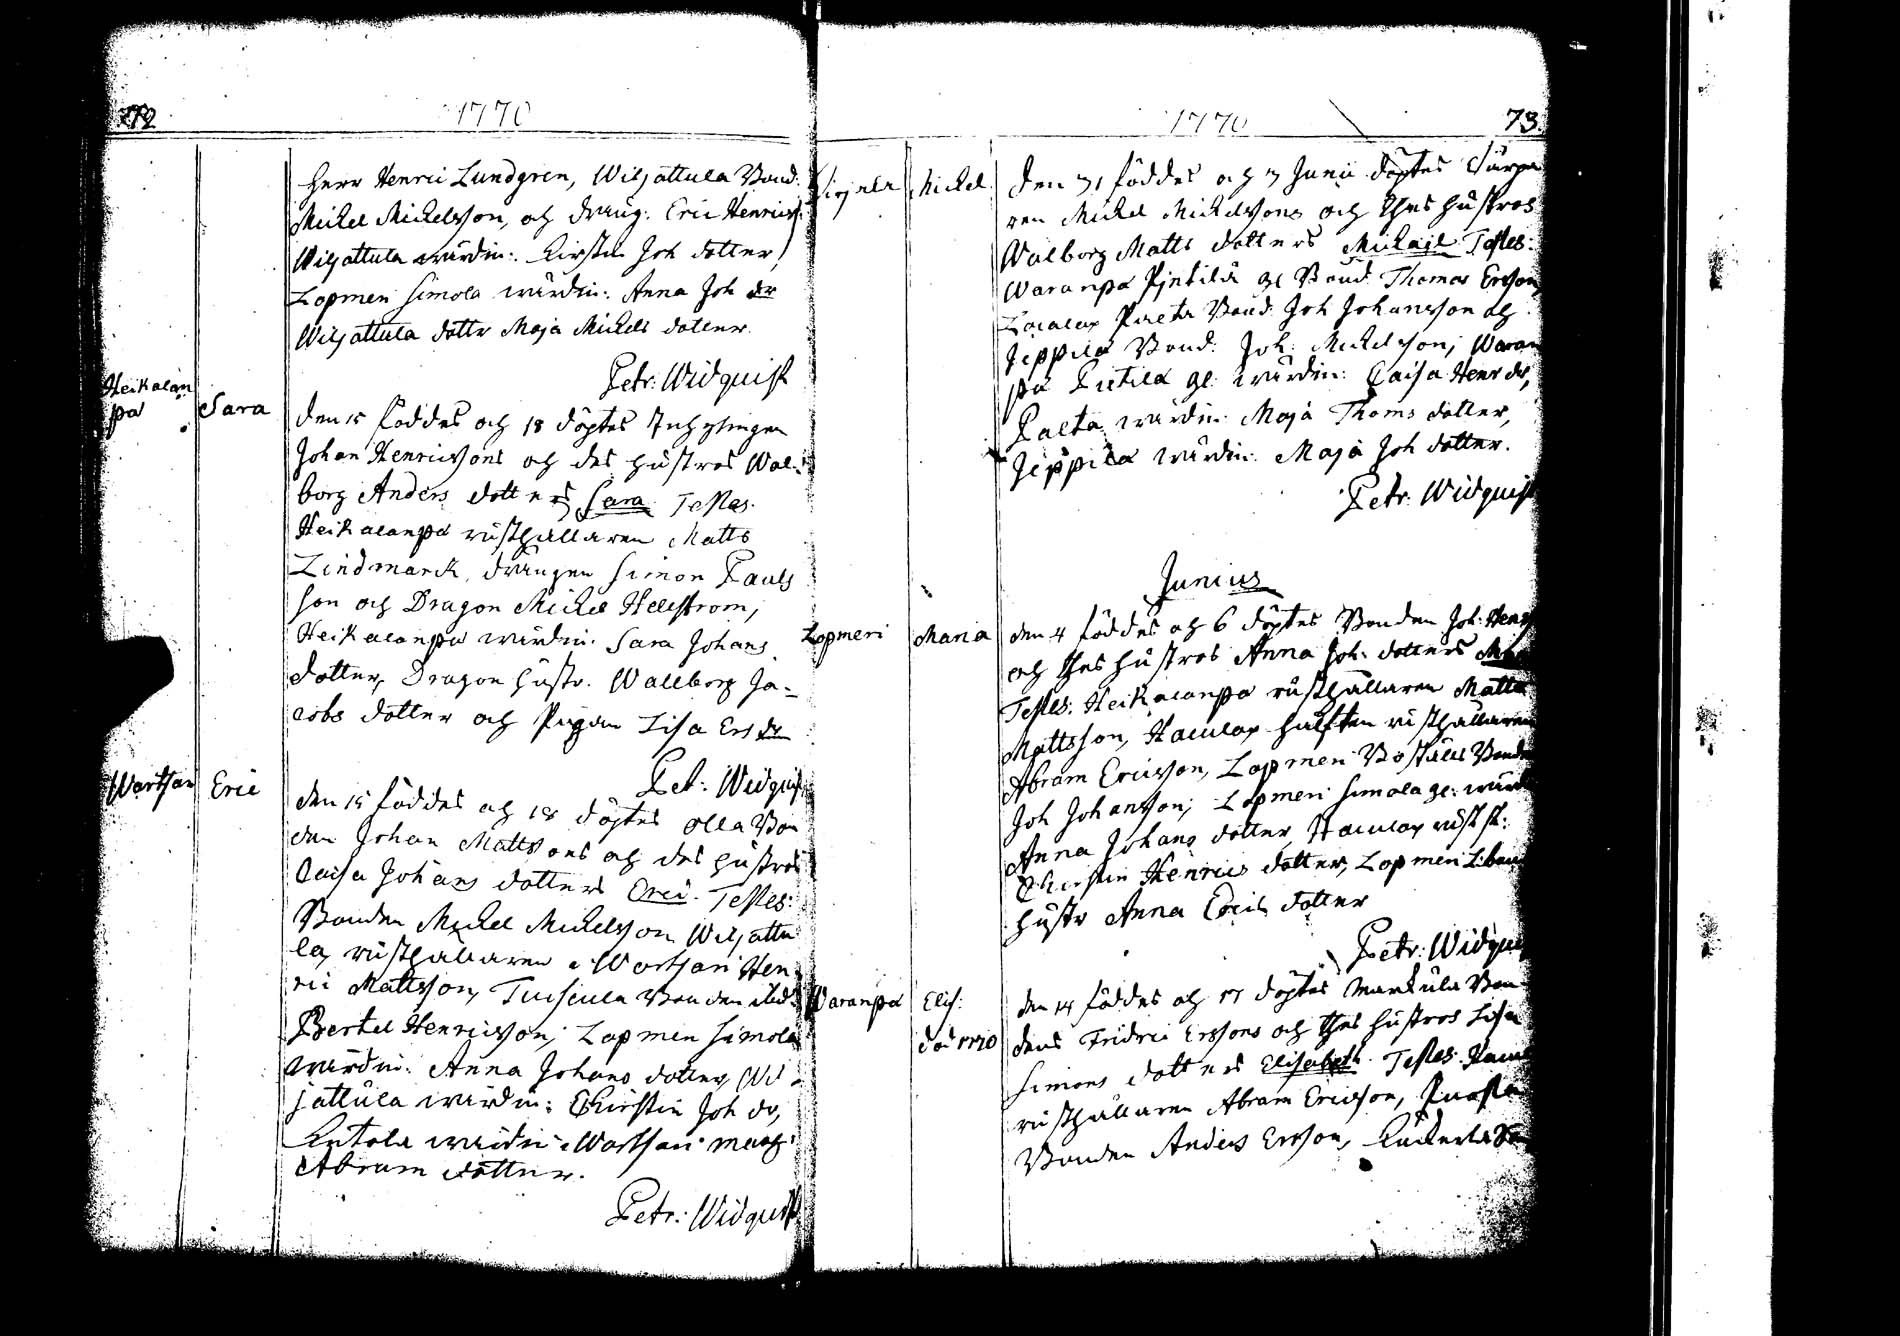 72
1770
Herr Henric Lundgren, Wiljattula Bond:
Mickel Mickelsson, och dräng: Eric Henrics:
Wiljattula wärdin: Kirstin Joh dotter,
Lopmeri Simola wärdin: Anna Joh dr
Wiljattula dottr Maja Mickels dotter.
Petr: Widquist
Heikalan
pä
Sara
den 15 föddes och 18 döptes Inhysingen
Johan Henricssons och des hustros Wal-
borg Anders dotters Sara Testes.
Heikalanpä rusthållaren Matts
Lindmarck, drängen Simon Pauls
son och Dragon Mickel Hellström,
Heikalanpä wärdin: Sara Johans
dotter, Dragon hustr. Wallborg Ja-
cobs dotter och Pigan Lisa Ers dr
Petr: Widquist
Wartsari
Eric
den 15 föddes och 18 döptes Olla Bon
den Johan Mattssons och des hustros
Caisa Johans dotters Eric. Testes:
Bonden Mickel Mickelsson Wiljattu
la, rusthållaren Wartsari Hen
ric Mattsson, Bonden
Bertel Henricsson; Lopmeri Simola
wärdin: Anna Johans dotter, Wil-
jattula wärdin: Chirstin Joh dr,
wärdin Wartsari
Abram dotter.
Petr: Widquist
1770
73.
Mickel
den 31 föddes och 3 Junii döptes
ren Mickel Mickelssons och thes hustros
Walborg Matts dotters Mickael Testes:
Waranpä gl Bond Thomas Ersson,
Bond: Joh Johansson och
Jeppilä Bond: Joh: Mickelsson; Waran
pä gl: wärdin: Caisa Henr dr,
wärdin: Maja Thoms dotter,
Jeppilä wärdin: Maja Joh dotter.
Petr: Widquist
Junius
Lopmeri
Maria
den 4 föddes och 6 döptes Bonden Joh: Henr
och thes hustros Anna Joh: dotters
Testes: Heikalanpä rusthållaren Matts
Mattsson, Haculax hälften rusthållaren
Abram Ericsson, Lopmeri Boställs Bonden
Joh Johansson; Lopmeri Simola gl: wärd
Anna Johans dotter, Haculax rust st:
Chirstin Henrics dotter, Lopmeri
hustr Anna Erics dotter
Petr: Widquist
Waranpä
Elis:
död 1770
den 14 föddes och 17 döptes Markula Bon
dens Fridric Erssons och thes hustros Lisa
Simons dotters Elisabeth. Testes.
rusthållaren Abram Ericsson,
Bonden Anders Ersson,